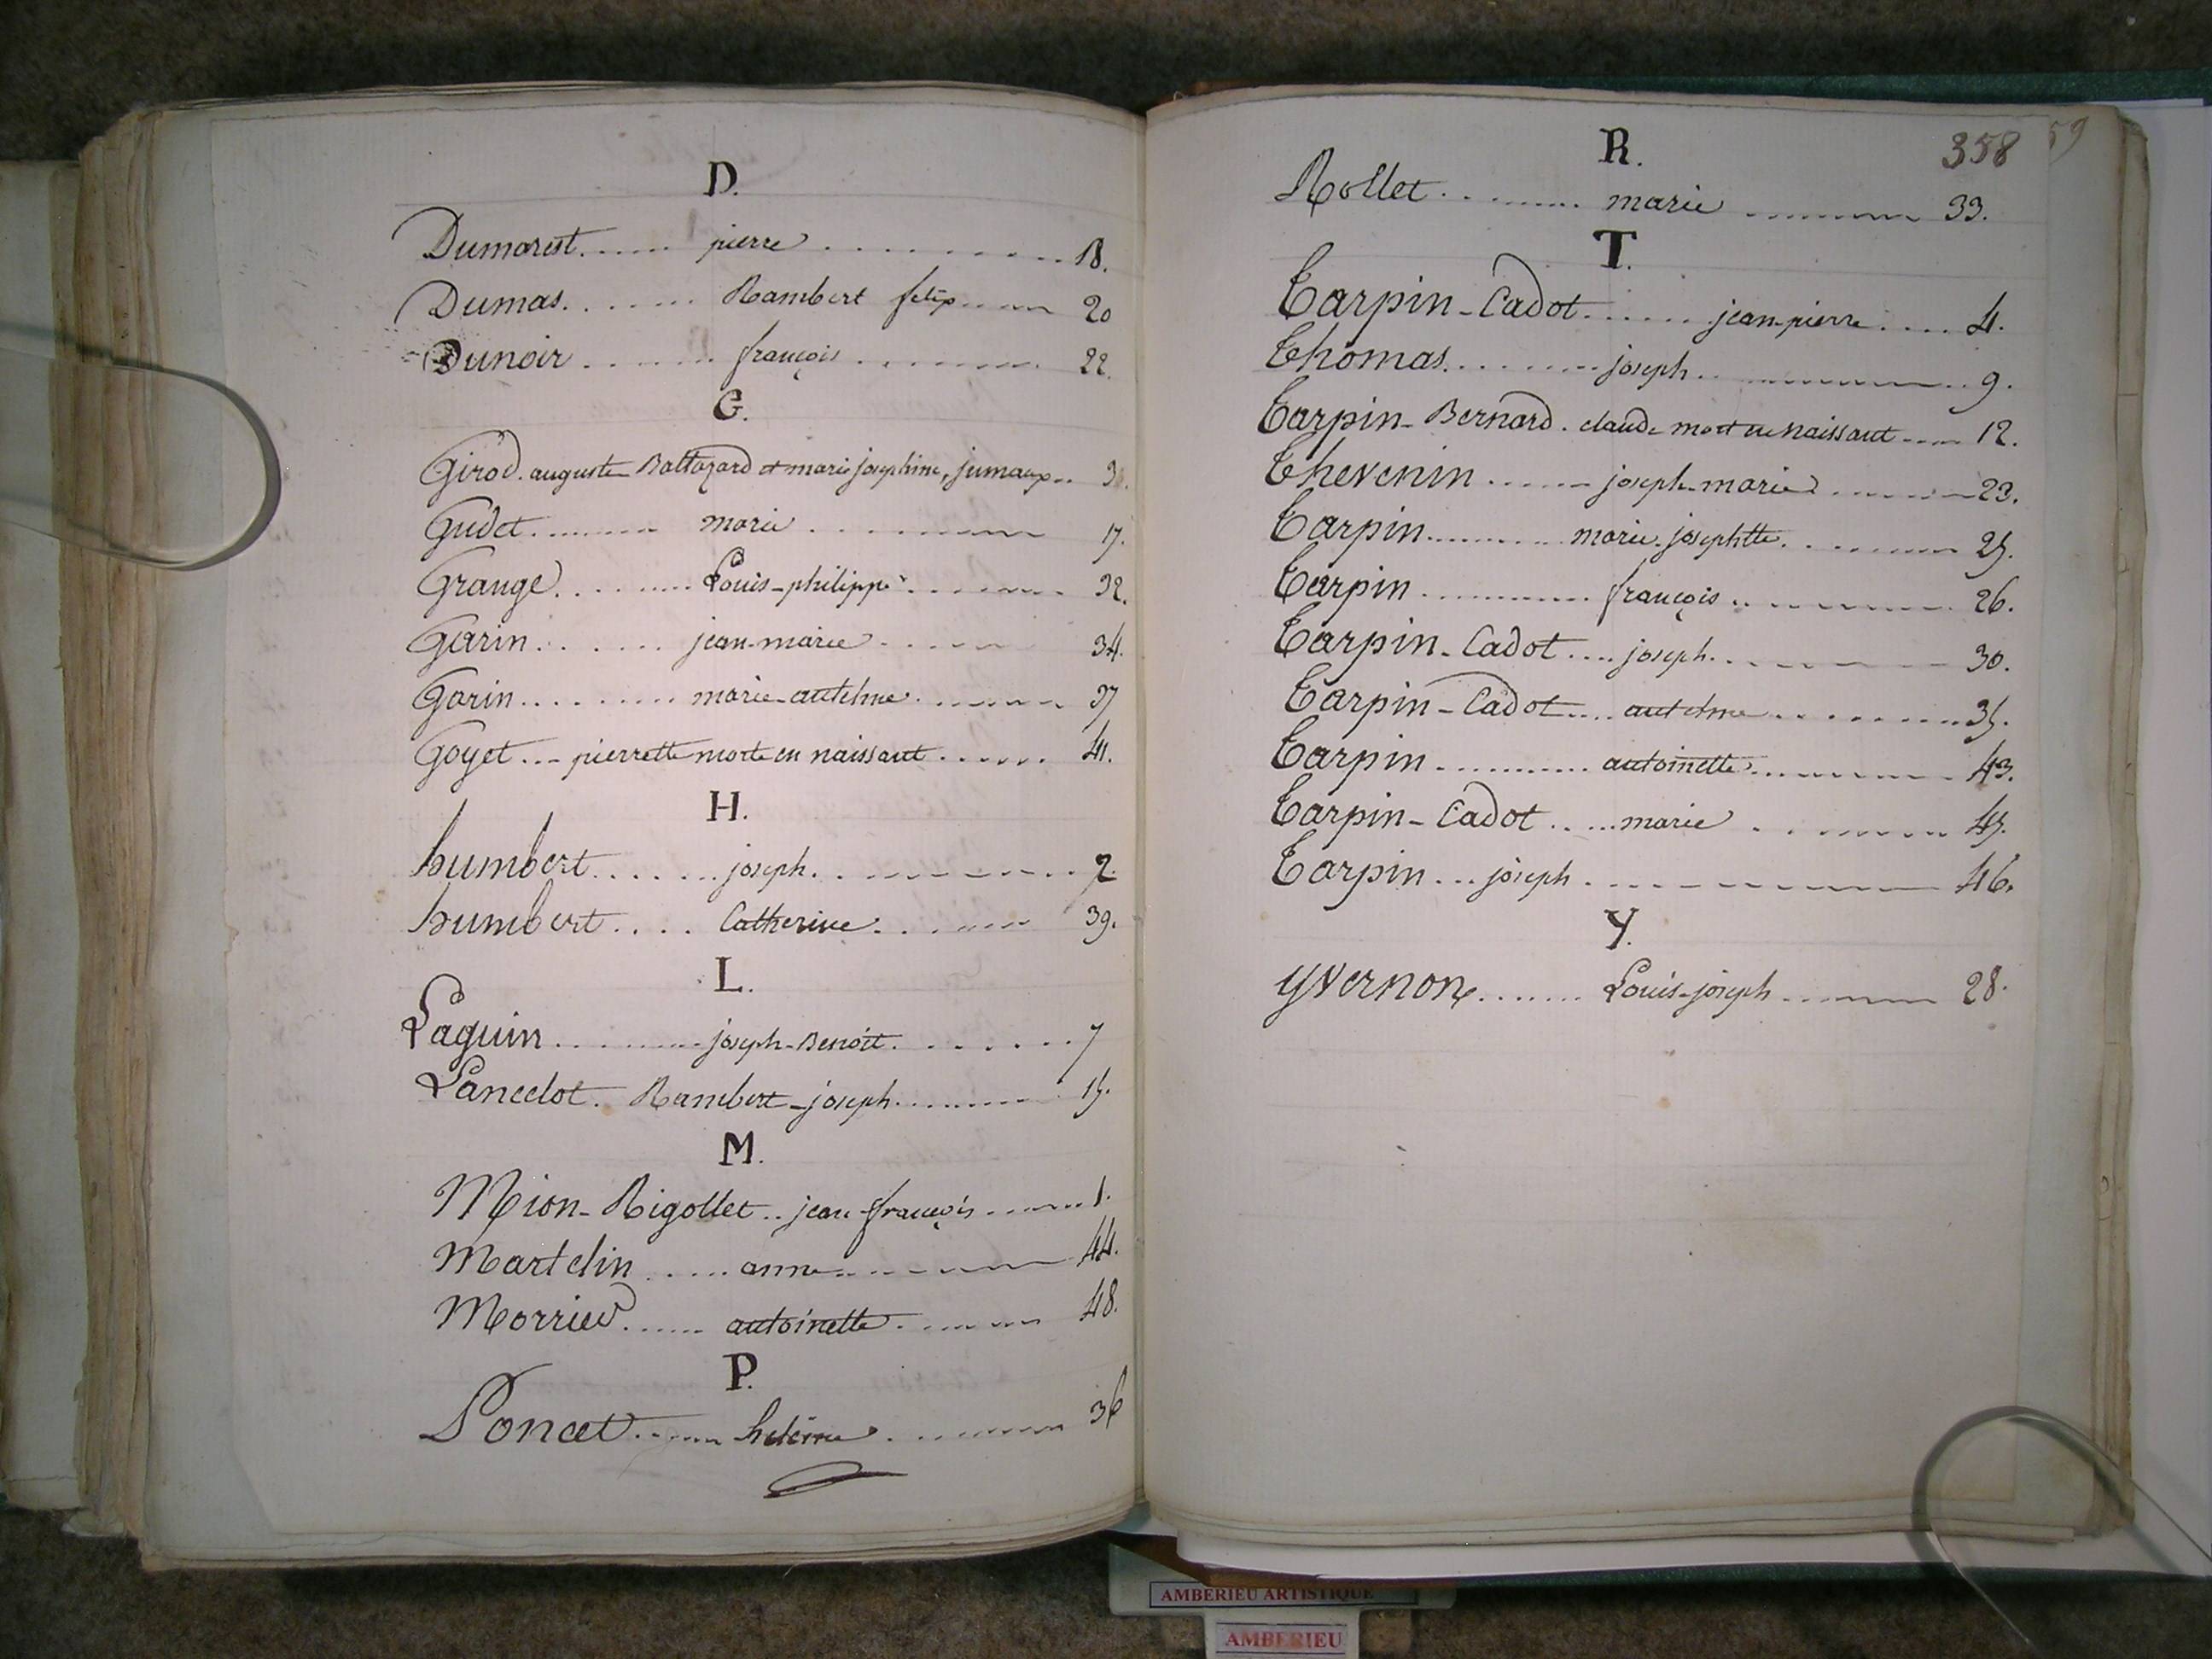 D.
Dumarest ...... pierre ............ 18.
Dumas ...... Rambert felix ...... 20
Dunoir ...... françois ...... 22.
G.
Girod. auguste Baltazard et marie josephine, jumeaux .. 3
Gudet ...... marie ...... 17.
Grange ...... Louis-philippe ...... 32.
Garin ...... jean-marie ...... 34.
Garin ...... marie-antelme ...... 37
Goyet ... pierrette morte en naissant ...... 41.
H.
humbert ...... joseph ...... 2.
humbert .... Catherine ...... 39.
L.
Laguin ...... joseph-Benoît ...... 7
Lancelot. Rambert-joseph ...... 15.
M.
Mion-Rigollet .. jean-françois ...... 1.
Martelin ..... anne ...... 44.
Morrier ...... antoinette ...... 48.
P.
Poncet ...... heléine ...... 36
358
59
R.
Rollet ...... marie ...... 33.
T.
Tarpin-Cadot ...... jean-pierre .... 4.
Thomas ...... joseph ...... 9.
Tarpin-Bernard. claude mort en naissant .... 12.
Thevenin ...... joseph-marie ...... 23.
Tarpin ...... marie-josephtte ...... 25.
Tarpin ...... françois ...... 26.
Tarpin-Cadot .... joseph ...... 30.
Tarpin-Cadot .... antelme ...... 35.
Tarpin ...... antoinette ...... 43.
Tarpin-Cadot ..... marie ...... 45.
Tarpin ... joseph ...... 46.
Y.
yvernon ...... Louis-joseph ...... 28.
AMBERIEU ARTISTIQUE
AMBERIEU